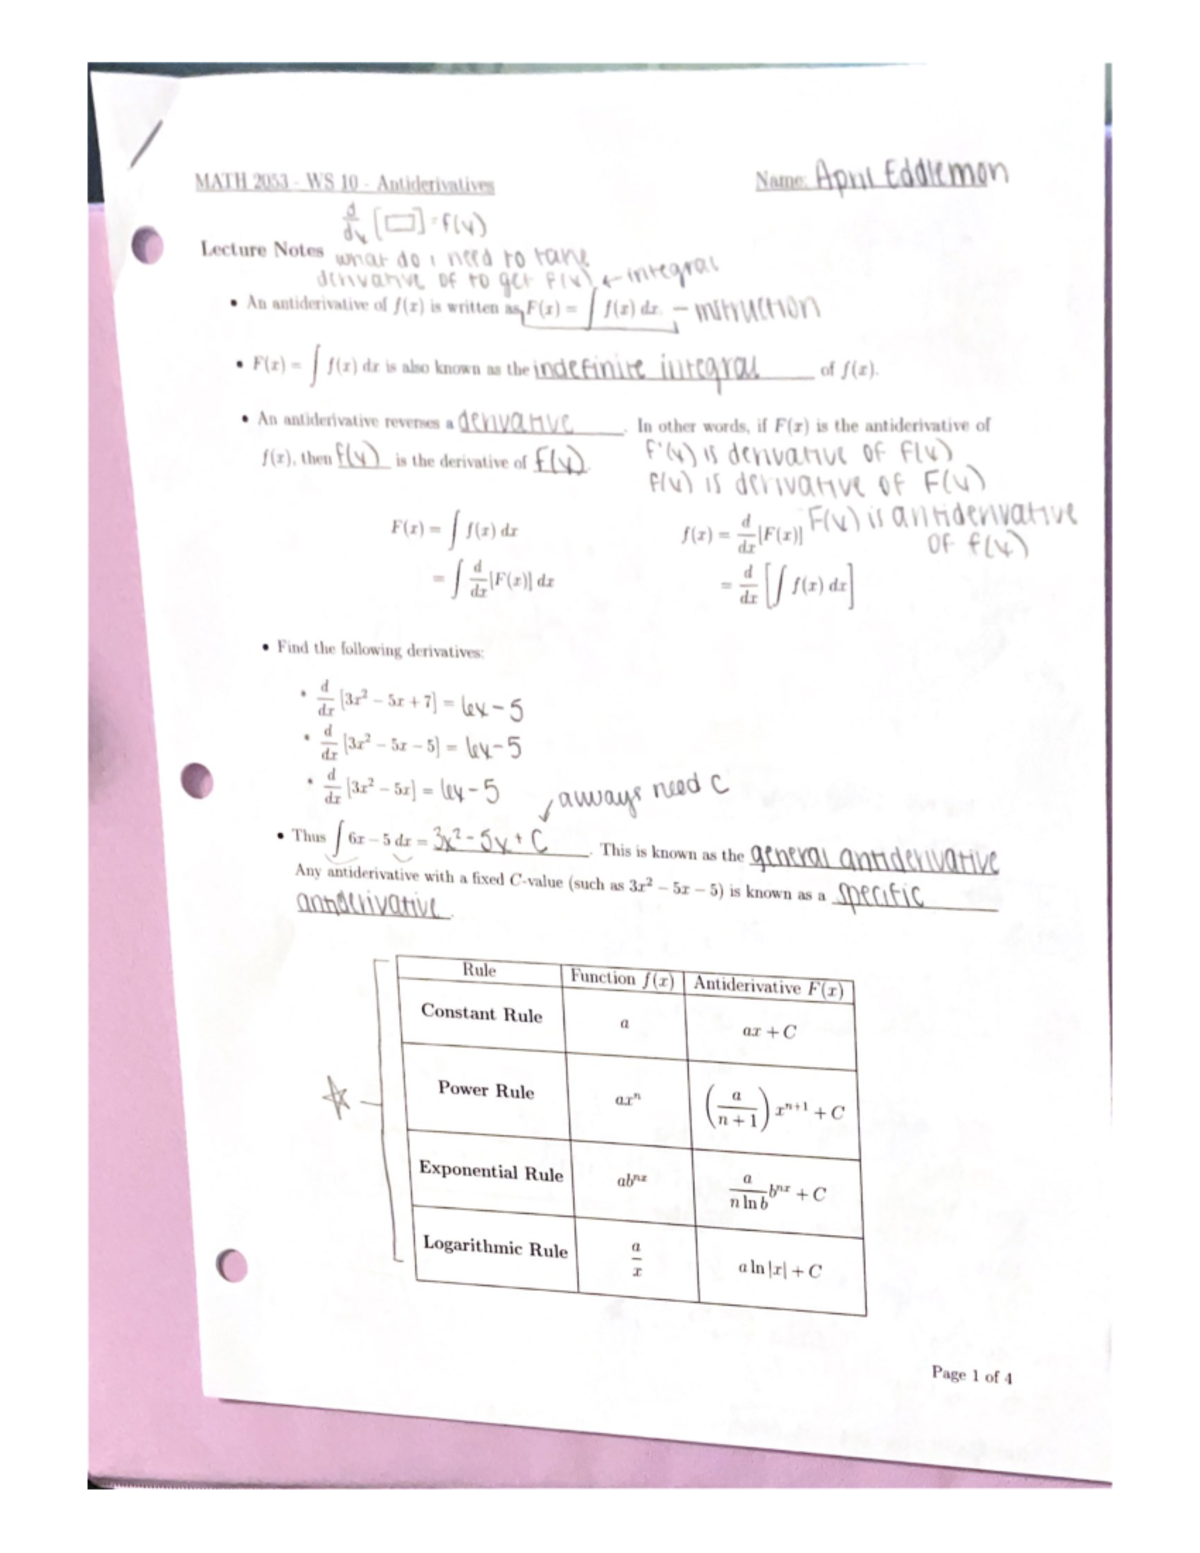 MATH 2053 - WS 10 - Antiderivatives Name: April Eddlemon
d/dx [▭] = f(x)
Lecture Notes what do i need to take
derivative of to get f(x) ← integral
• An antiderivative of f(x) is written as F(x) = ∫ f(x) dx. – instruction
• F(x) = ∫ f(x) dx is also known as the indefinite integral of f(x).
• An antiderivative reverses a derivative. In other words, if F(x) is the antiderivative of
f(x), then f(x) is the derivative of F(x).
F'(x) is derivative of F(x)
f(x) is derivative of F(x)
F(x) is antiderivative of f(x)
F(x) = ∫ f(x) dx f(x) = d/dx [F(x)]
= ∫ d/dx [F(x)] dx = d/dx [∫ f(x) dx]
• Find the following derivatives:
• d/dx [3x² − 5x + 7] = 6x − 5
• d/dx [3x² − 5x − 5] = 6x − 5
• d/dx [3x² − 5x] = 6x − 5
always need C
• Thus ∫ 6x − 5 dx = 3x² − 5x + C. This is known as the general antiderivative
Any antiderivative with a fixed C-value (such as 3x² − 5x − 5) is known as a specific
antiderivative.
Rule Function f(x) Antiderivative F(x)
Constant Rule a ax + C
Power Rule axⁿ (a/(n + 1)) xⁿ⁺¹ + C
Exponential Rule abⁿˣ a/(n ln b) bⁿˣ + C
Logarithmic Rule a/x a ln |x| + C
Page 1 of 4